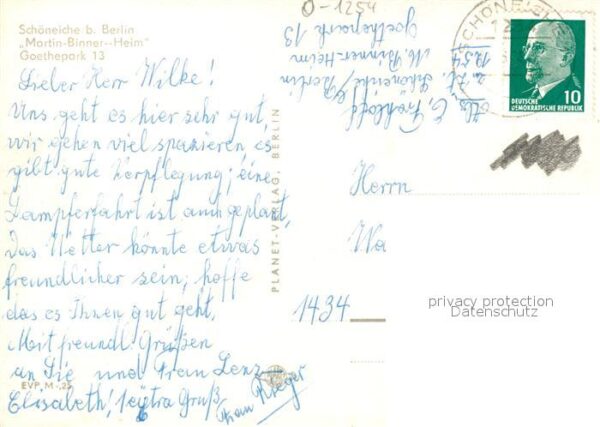 0-1254
Schöneiche b. Berlin
„Martin-Binner--Heim"
Goethepark 13
Lieber Herr Wilke!
Uns geht es hier sehr gut,
wir gehen viel spazieren, es
gibt gute Verpflegung; eine
Dampferfahrt ist auch geplant,
Das Wetter könnte etwas
freundlicher sein; hoffe
das es Ihnen gut geht,
Mit freundl. Grüßen
an Sie und Frau Lenz
Elisabeth, Gruß
Frau Krieger
EVP M -,25
PLANET-VERLAG, BERLIN
Abs. E. Fröhloff
z. Zt. Schöneiche b/Berlin
1254 M. Binner-Heim
Goethepark 13
SCHÖNEICHE
DEUTSCHE
DEMOKRATISCHE REPUBLIK
10
Herrn
Wa
1434
privacy protection
Datenschutz